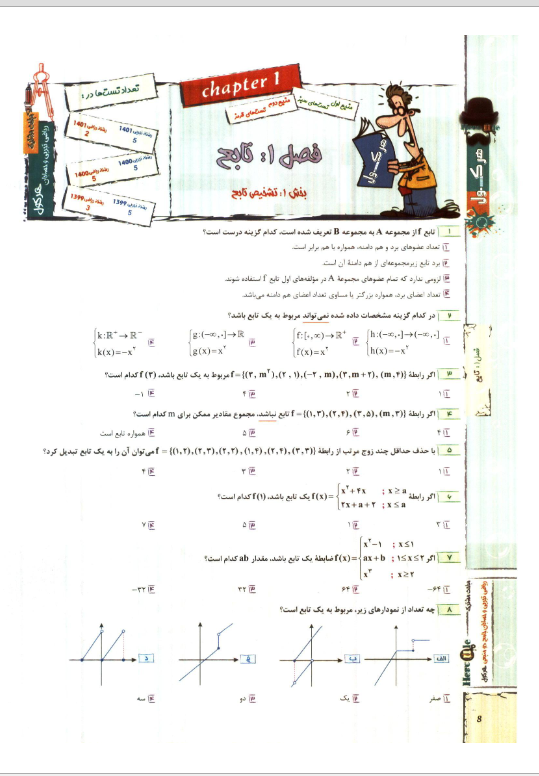 chapter 1
تعداد تست‌ها در:
منبع اول تست‌های سبز
منبع دوم تست‌های قرمز
فصل ۱: تابع
بخش ۱: تشخیص تابع
هرکول
۱ تابع f از مجموعه A به مجموعه B تعریف شده است، کدام گزینه درست است؟
۱ تعداد عضوهای برد و هم دامنه، همواره با هم برابر است.
۲ برد تابع زیرمجموعه‌ای از هم دامنهٔ آن است.
۳ لزومی ندارد که تمام عضوهای مجموعهٔ A در مؤلفه‌های اول تابع f استفاده شوند.
۴ تعداد اعضای برد، همواره بزرگتر یا مساوی تعداد اعضای هم دامنه می‌باشد.
۲ در کدام گزینه مشخصات داده شده نمی‌تواند مربوط به یک تابع باشد؟
۱ h:(-∞,۰]→(-∞,۰] h(x)=-x² ۲ f:[۰,∞)→ℝ⁺ f(x)=x² ۳ g:(-∞,۰]→ℝ g(x)=x² ۴ k:ℝ⁺→ℝ⁻ k(x)=-x²
۳ اگر رابطهٔ f={(۳, m²),(۲, ۱),(-۲, m),(۳, m+۲),(m, ۴)} مربوط به یک تابع باشد، f(۲) کدام است؟
۱ ۱ ۲ ۲ ۳ ۴ ۴ -۱
۴ اگر رابطهٔ f={(۱,۳),(۲,۴),(۳,۵),(m,۳)} تابع نباشد، مجموع مقادیر ممکن برای m کدام است؟
۱ ۴ ۲ ۶ ۳ ۵ ۴ همواره تابع است
۵ با حذف حداقل چند زوج مرتب از رابطهٔ f={(۱,۲),(۲,۳),(۲,۲),(۱,۴),(۲,۴),(۳,۳)} می‌توان آن را به یک تابع تبدیل کرد؟
۱ ۱ ۲ ۲ ۳ ۳ ۴ ۴
۶ اگر رابطهٔ f(x)={x²+۴x ; x≥a
۲x+a+۲ ; x≤a یک تابع باشد، f(۱) کدام است؟
۱ ۳ ۲ ۱ ۳ ۵ ۴ ۷
۷ اگر f(x)={x²-۱ ; x≤۱
ax+b ; ۱≤x≤۲
x³ ; x≥۲ ضابطهٔ یک تابع باشد، مقدار ab کدام است؟
۱ -۶۴ ۲ ۶۴ ۳ ۳۲ ۴ -۳۲
۸ چه تعداد از نمودارهای زیر، مربوط به یک تابع است؟
الف ب ج د
۱ صفر ۲ یک ۳ دو ۴ سه
فصل ۱: تابع
Hercule
8